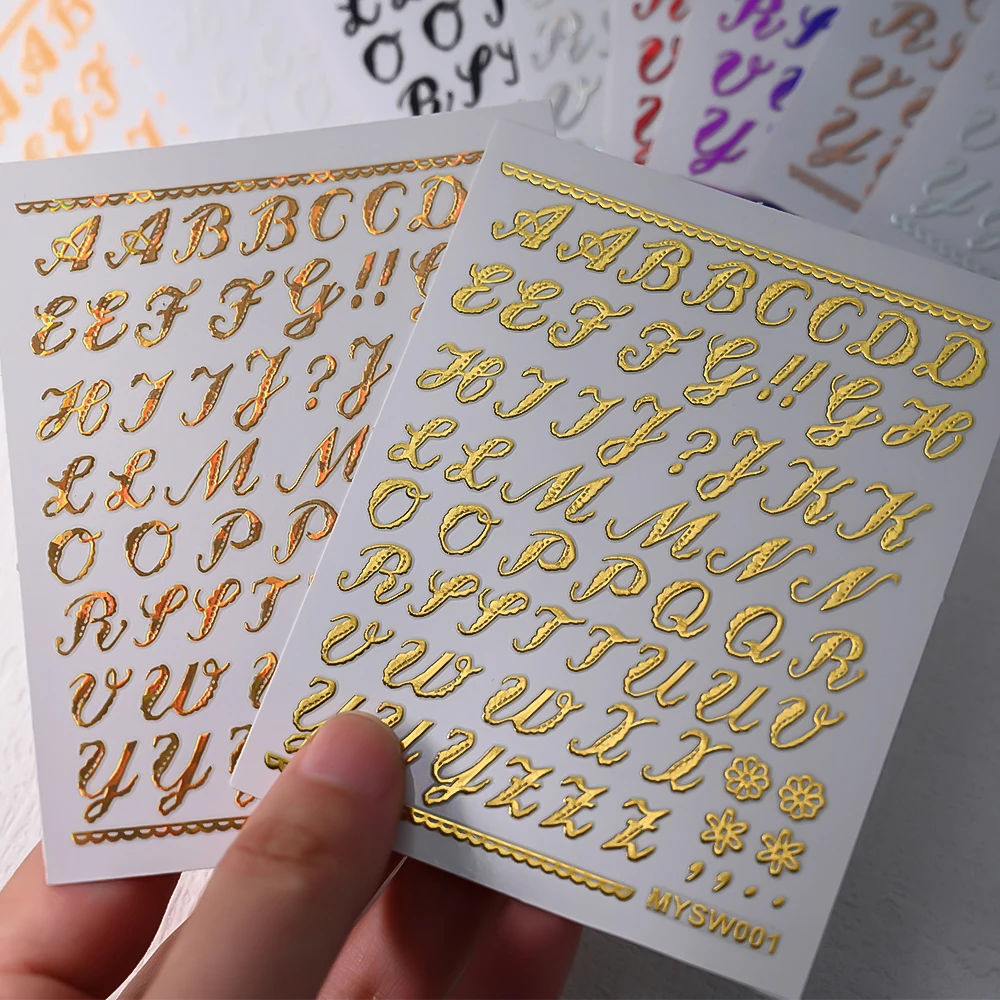 A A B B C C D
E E F F G !!
H I I J ? J
L L M M
O O P P
R S S T
V W
Y Y
A A B B C C D D
E E F F G !! G H
H I I J ? J K K
L L M M N N
O O P P Q Q R
R S S T T U U V
V W W X X
Y Y Y Z Z Z , , . .
MYSW001